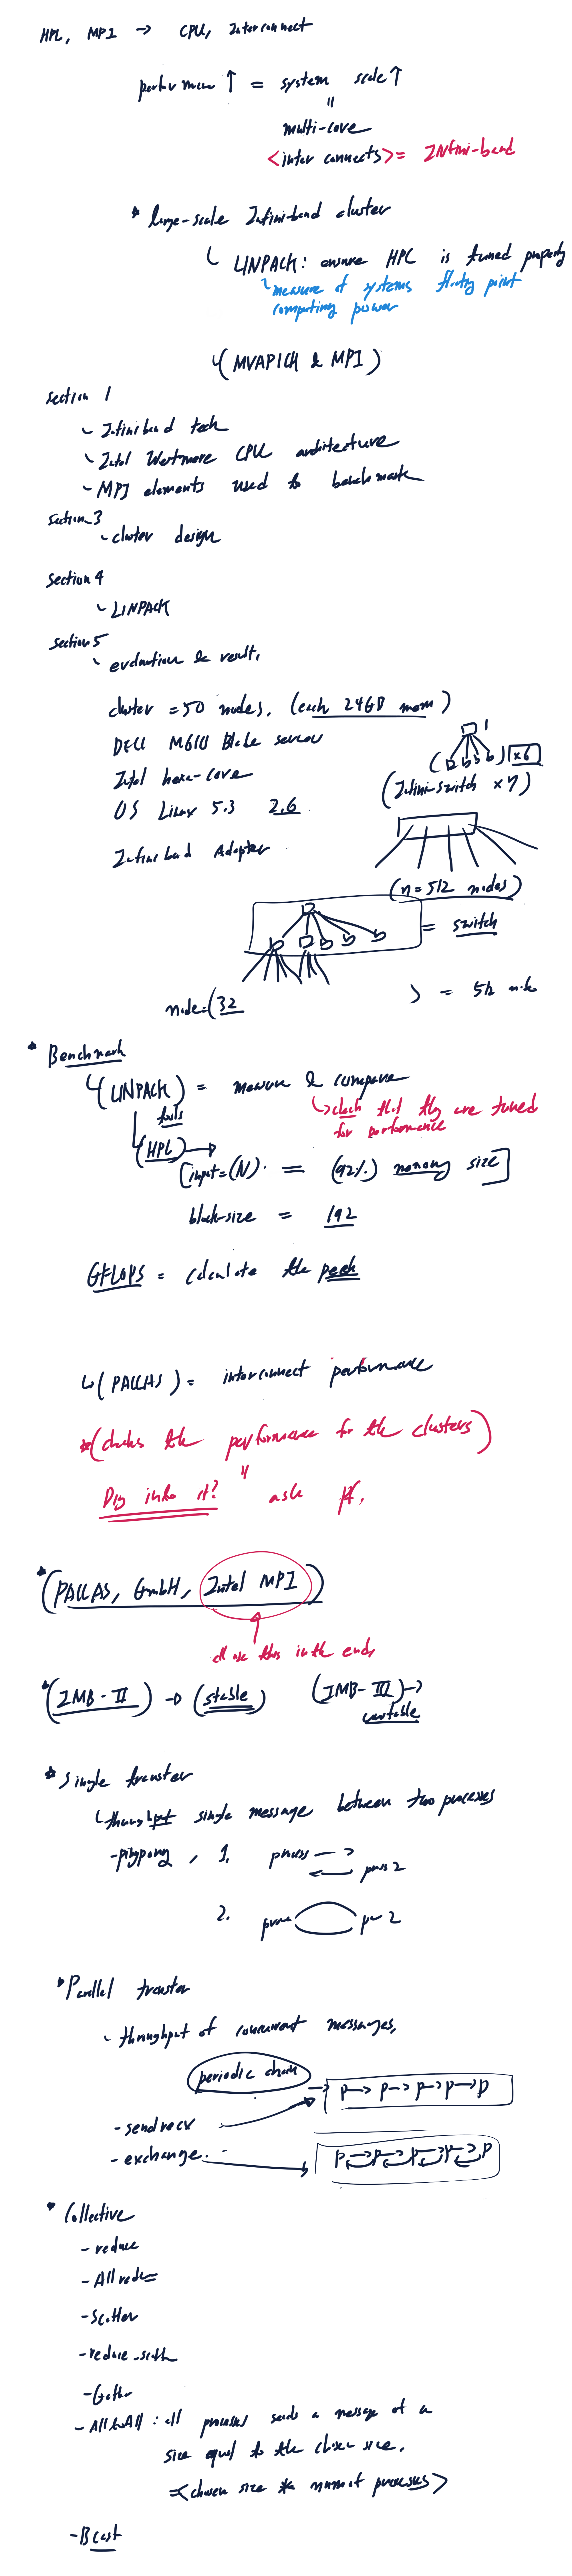 HPL, MPI → CPU, Interconnect
performance ↑ = system scale ↑
=
multi-core
<inter connects> = INfini-band
* large-scale Infiniband cluster
LINPACK: ensure HPC is tuned properly
measure of systems floating point
computing power
(MVAPICH & MPI)
section 1
- Infiniband tech
- Intel Westmore CPU architecture
- MPI elements used to benchmark
section 3
- cluster design
section 4
- LINPACK
section 5
- evaluation & result.
cluster = 50 nodes. (each 24GB mem)
DELL M610 Blade server
Intel hexa-core
OS Linux 5.3 2.6
Infiniband Adapter
1
x6
(Infini-switch x7)
(n=512 nodes)
= switch
node=(32
) = 512 nodes
* Benchmark
(LINPACK) = measure & compare
tools
→ check that they are tuned
for performance
(HPL) →
[input=(N). = (92%) memory size]
block-size = 192
GFLOPS = calculate the peak
↳ (PALLAS) = interconnect performance
*(checks the performance for the clusters)
Dig into it? ask
*(PALLAS, GmbH, Intel MPI)
all use this in the end,
*(IMB-II) → (stable) (IMB-III) →
unstable
* Single transfer
throughput single message between two processes
- pingpong, 1. process → 
← 2
2. 2
* Parallel transfer
- throughput of concurrent messages,
periodic chain
→ P → P → P → P → P
- sendrecv
- exchange.
P P P P P
* Collective
- reduce
- All reduce
- Scatter
- reduce-scatter
- Gather
- AlltoAll : all processes sends a message of a
size equal to the chosen size.
=<chosen size * num of processes>
- Bcast